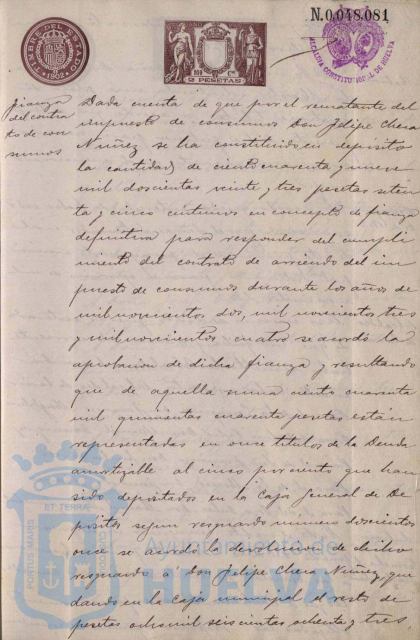 N.0,048,081
TIMBRE DEL ESTADO
1902
2 PESETAS
ALCALDIA CONSTITUCIONAL DE HUELVA
fianza
del contra
to de con
sumos
Dada cuenta de que por el rematante del
impuesto de consumos Don Felipe Chera
Nuñez se ha constituido en deposito
la cantidad de ciento cuarenta y nueve
mil doscientas veinte y tres pesetas seten
ta y cinco centimos en concepto de fianza
definitiva para responder del cumpli
miento del contrato de arriendo del im
puesto de consumos durante los años de
mil novecientos dos, mil novecientos tres
y mil novecientos cuatro se acordó la
aprobacion de dicha fianza y resultando
que de aquella suma ciento cuarenta
mil quinientas cuarenta pesetas están
representadas en once titulos de la Deuda
amortizable al cinco por ciento que han
sido depositados en la Caja General de De
pósitos segun resguardo numero doscientos
once se acordó la devolucion de dicho
resguardo á Don Felipe Chera Nuñez, que
dando en la Caja municipal el resto de
pesetas ocho mil seiscientas ochenta y tres
PORTUS MARIS
ET TERRAE
CUSTODIA
Ayuntamiento de
HUELVA